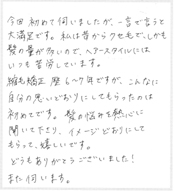 今回 初めて伺いましたが、一言で言うと
大満足です。私は昔からクセ毛で、しかも
髪の量が多いので、ヘアースタイルには
いつも苦労しています。
縮毛矯正 歴 6〜7年ですが、こんなに
自分の思いどおりにしてもらったのは
初めてです。髪の悩みを熱心に
聞いて下さり、イメージどおりにして
もらって、嬉しいです。
どうもありがとうございました!
また伺います。